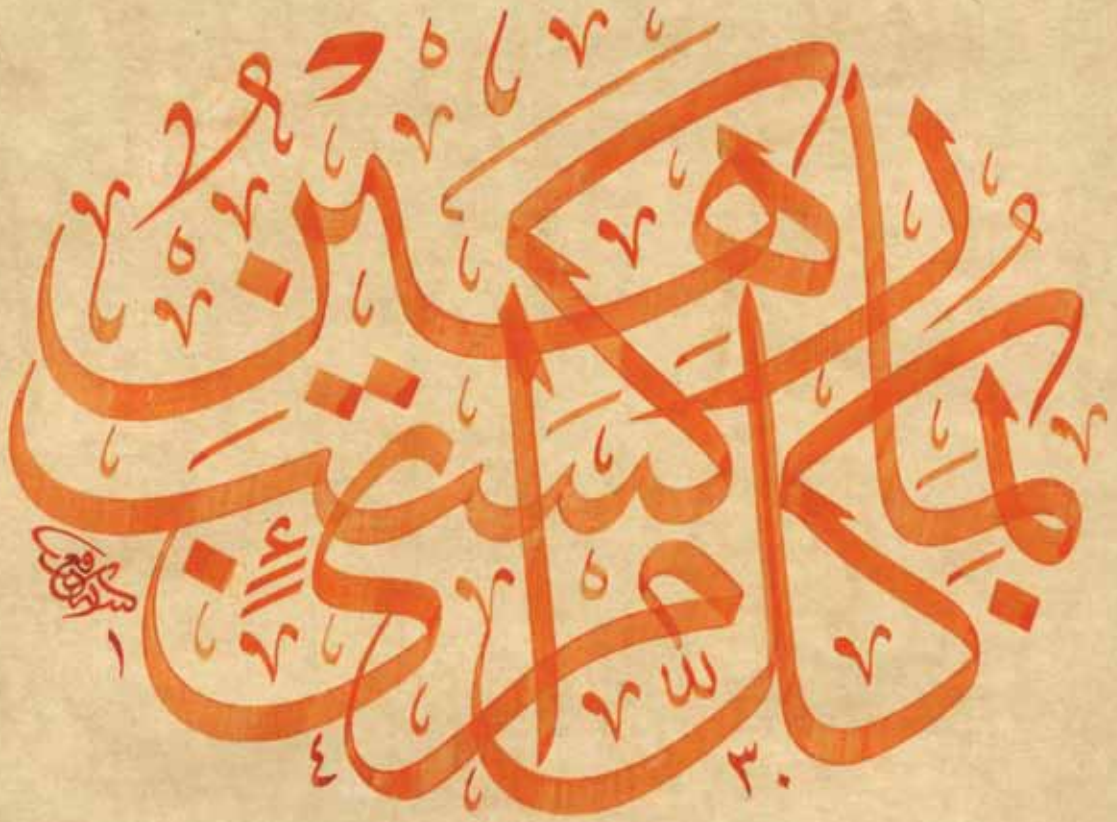 كُلُّ امْرِئٍ بِمَا كَسَبَ رَهِينٌ
١٤٣٠